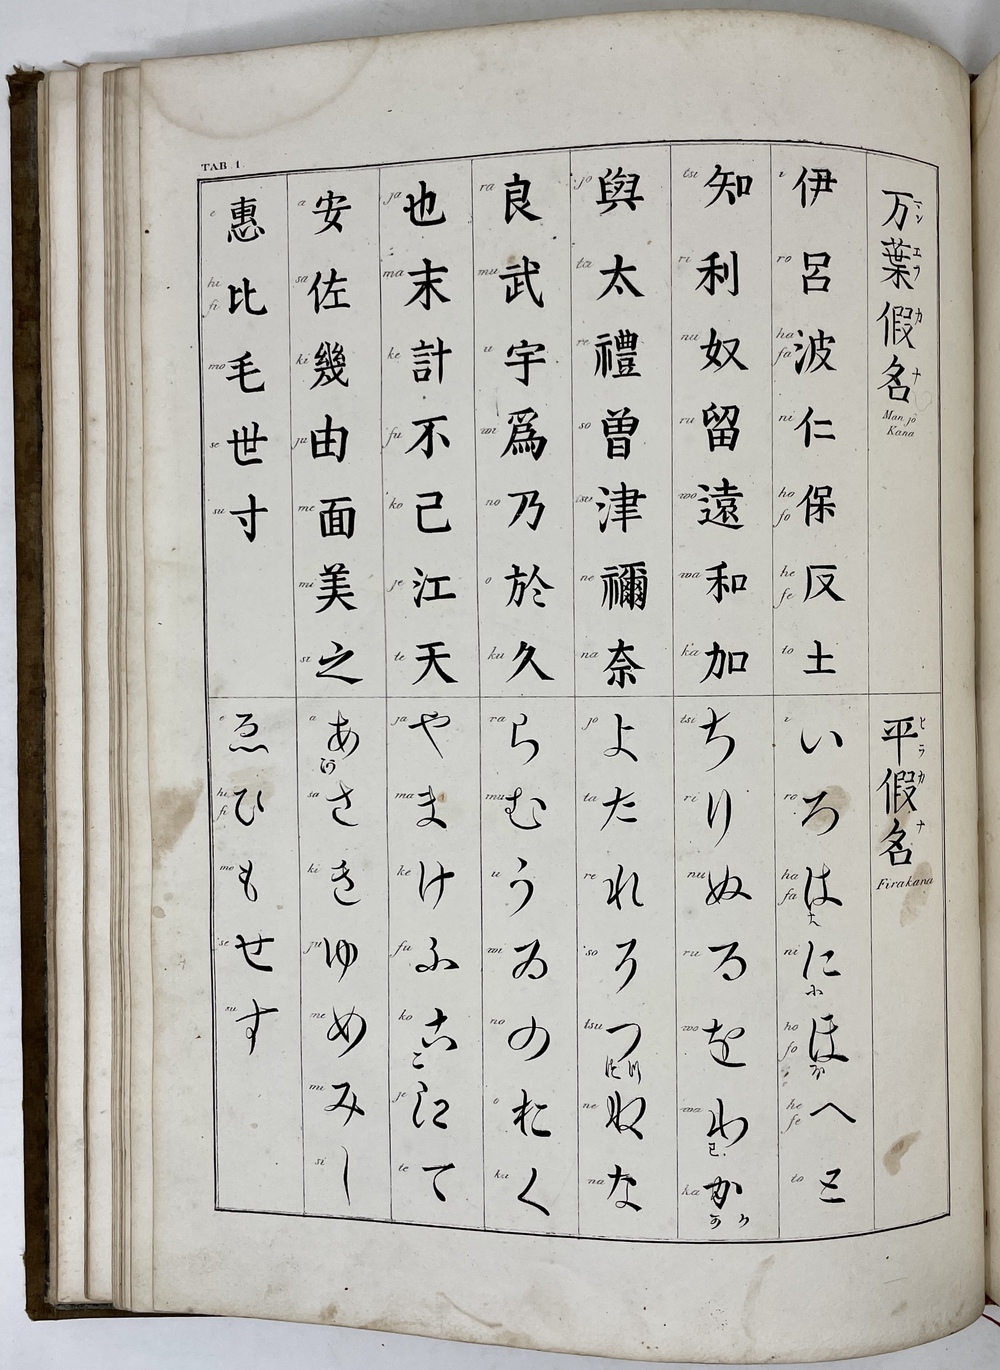 TAB. 1.
万葉假名
マンエフカナ
Man jô
Kana
伊 呂 波 仁 保 反 土
i ro ha fa ni ho fo he fe to
知 利 奴 留 遠 和 加
tsi ri nu ru wo wa ka
與 太 禮 曽 津 禰 奈
jo ta re so tsu ne na
良 武 宇 爲 乃 於 久
ra mu u wi no o ku
也 末 計 不 己 江 天
ja ma ke fu ko je te
安 佐 幾 由 面 美 之
a sa ki ju me mi si
惠 比 毛 世 寸
e hi fi mo se su
平假名
ヒラカナ
Firakana
い ろ は に ほ へ と
i ro ha fa ni ho fo he fe to
ち り ぬ る を わ か
tsi ri nu ru wo wa ka
よ た れ そ つ ね な
jo ta re so tsu ne na
ら む う ゐ の お く
ra mu u wi no o ku
や ま け ふ こ え て
ja ma ke fu ko je te
あ さ き ゆ め み し
a sa ki ju me mi si
ゑ ひ も せ す
e hi fi mo se su